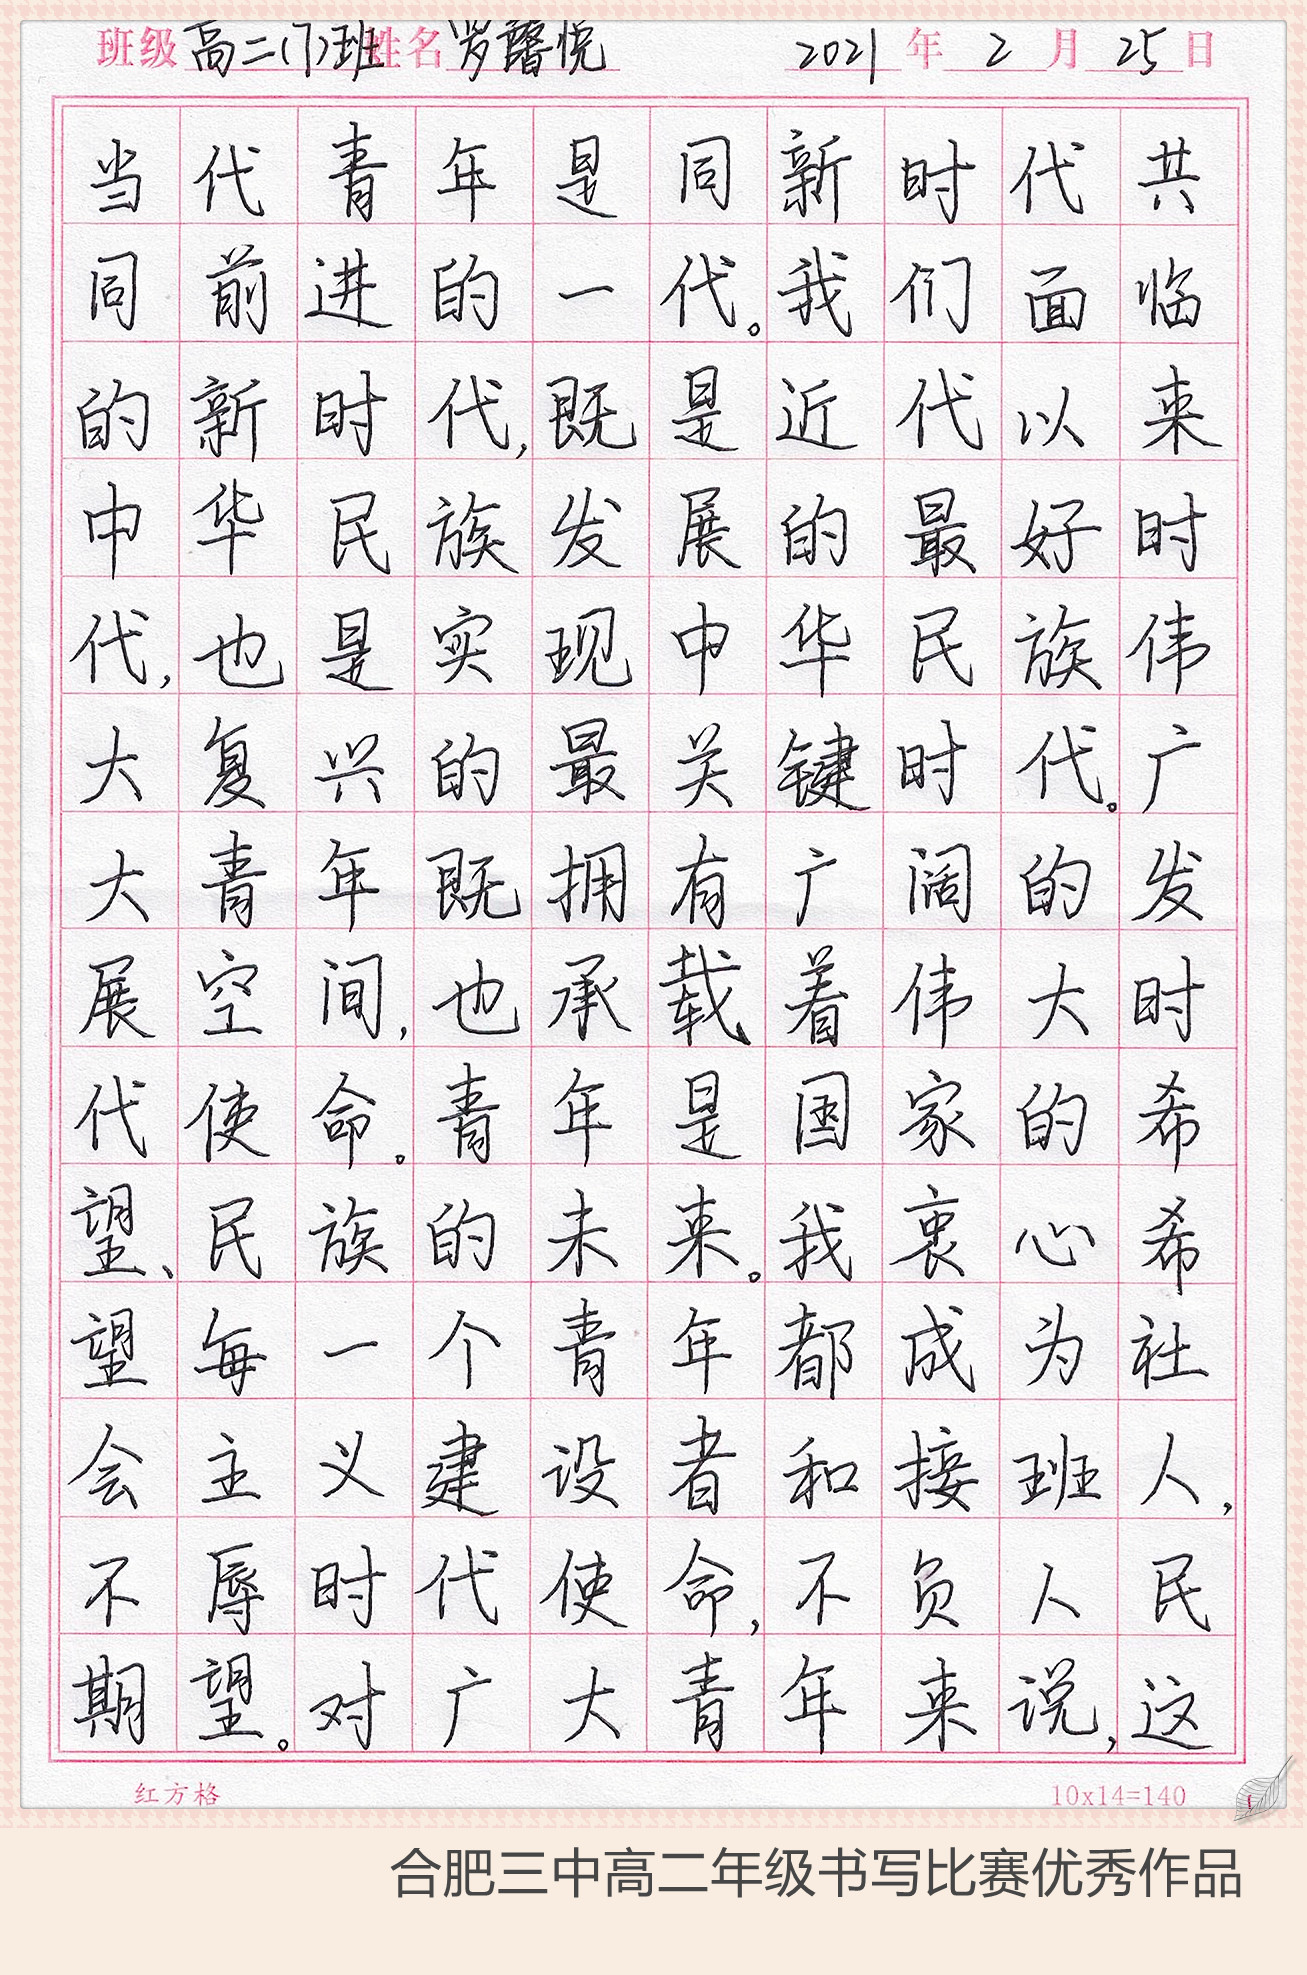 班级 高二(7)班 姓名 罗馨悦 2021 年 2 月 25 日
当代青年是同新时代共
同前进的一代。我们面临
的新时代,既是近代以来
中华民族发展的最好时
代,也是实现中华民族伟
大复兴的最关键时代。广
大青年既拥有广阔的发
展空间,也承载着伟大时
代使命。青年是国家的希
望、民族的未来。我衷心希
望每一个青年都成为社
会主义建设者和接班人,
不辱时代使命,不负人民
期望。对广大青年来说,这
红方格 10x14=140
合肥三中高二年级书写比赛优秀作品